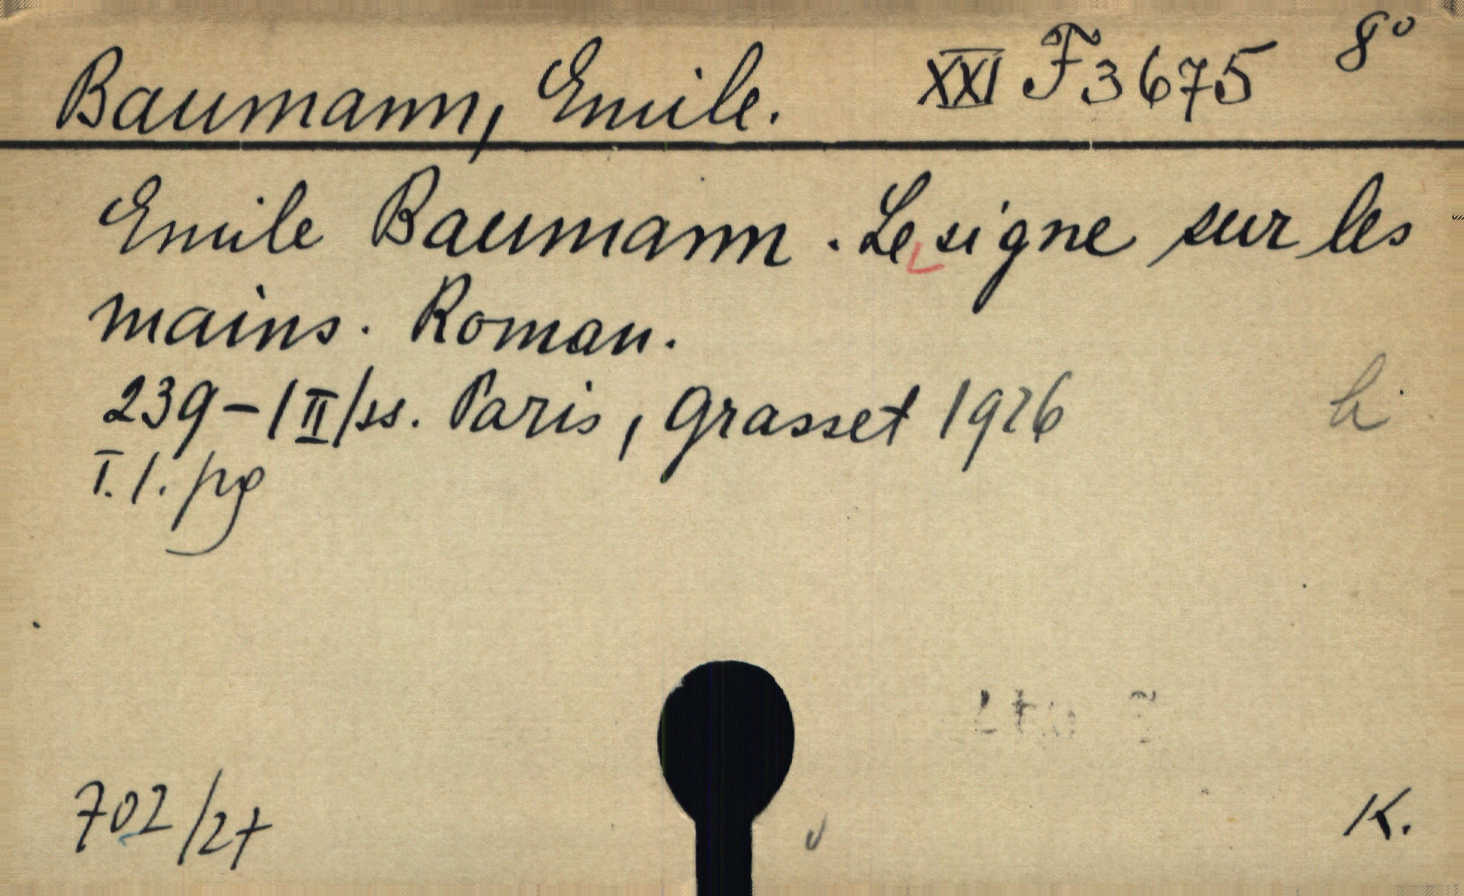 Baumann, Emile. XXI F3675 8°
Emile Baumann. Le signe sur les
mains. Roman.
239-/II/ss. Paris, Grasset 1926 h
I.1. pg
702/27
K.